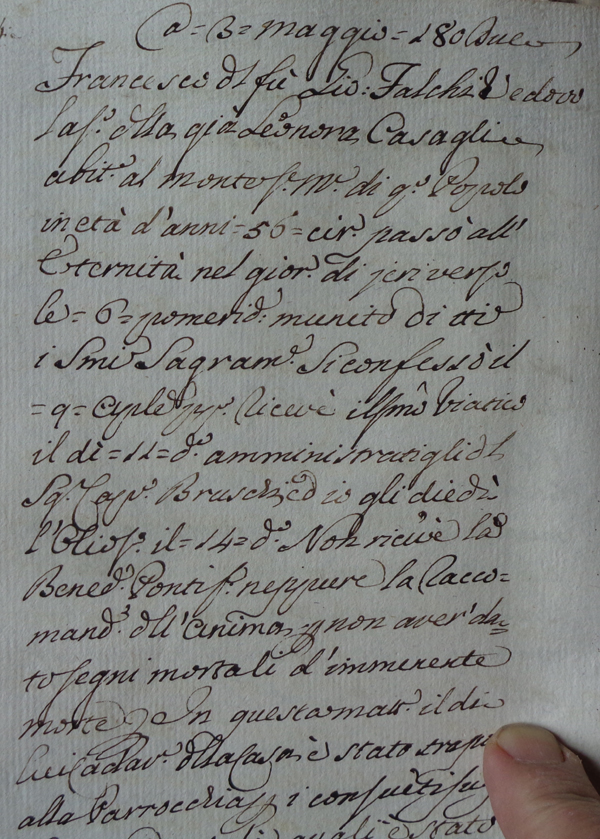 A = 3 = Maggio = 180
Francesco dl fù Falchi Vedovo
della già Leonora Casaglia
abit.e al monte di q.o Popolo
in età d'anni = 56 = cir.a passò all'
Eternità nel gior.o di jeri verso
le = 6 = pomerid.e munito di
i Smi Sagram.ti Si confessò il
= 9 = Aple Ricevè il Smo Viatico
il dì = 11 = d.o amministratigli dl
Sg.r Cap. Bruschi ed io gli diedi
l'Olio S. il = 14 = d.o Non ricevè la
Bened.e Pontif. neppure la Racco=
mand.e dll'Anima p non aver da=
to segni mortali d'imminente
morte. In questa matt.a il di
lui Cadav.e dlla Casa è stato
alla Parrocchia i consueti
quali è stato